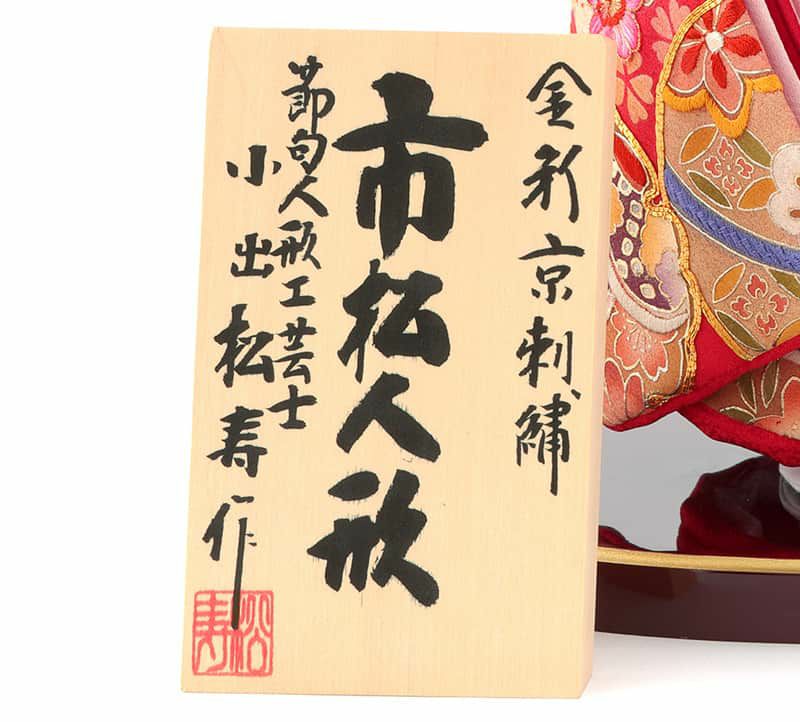 金彩京刺繍
市松人形
節句人形工芸士
小出松寿作
松寿